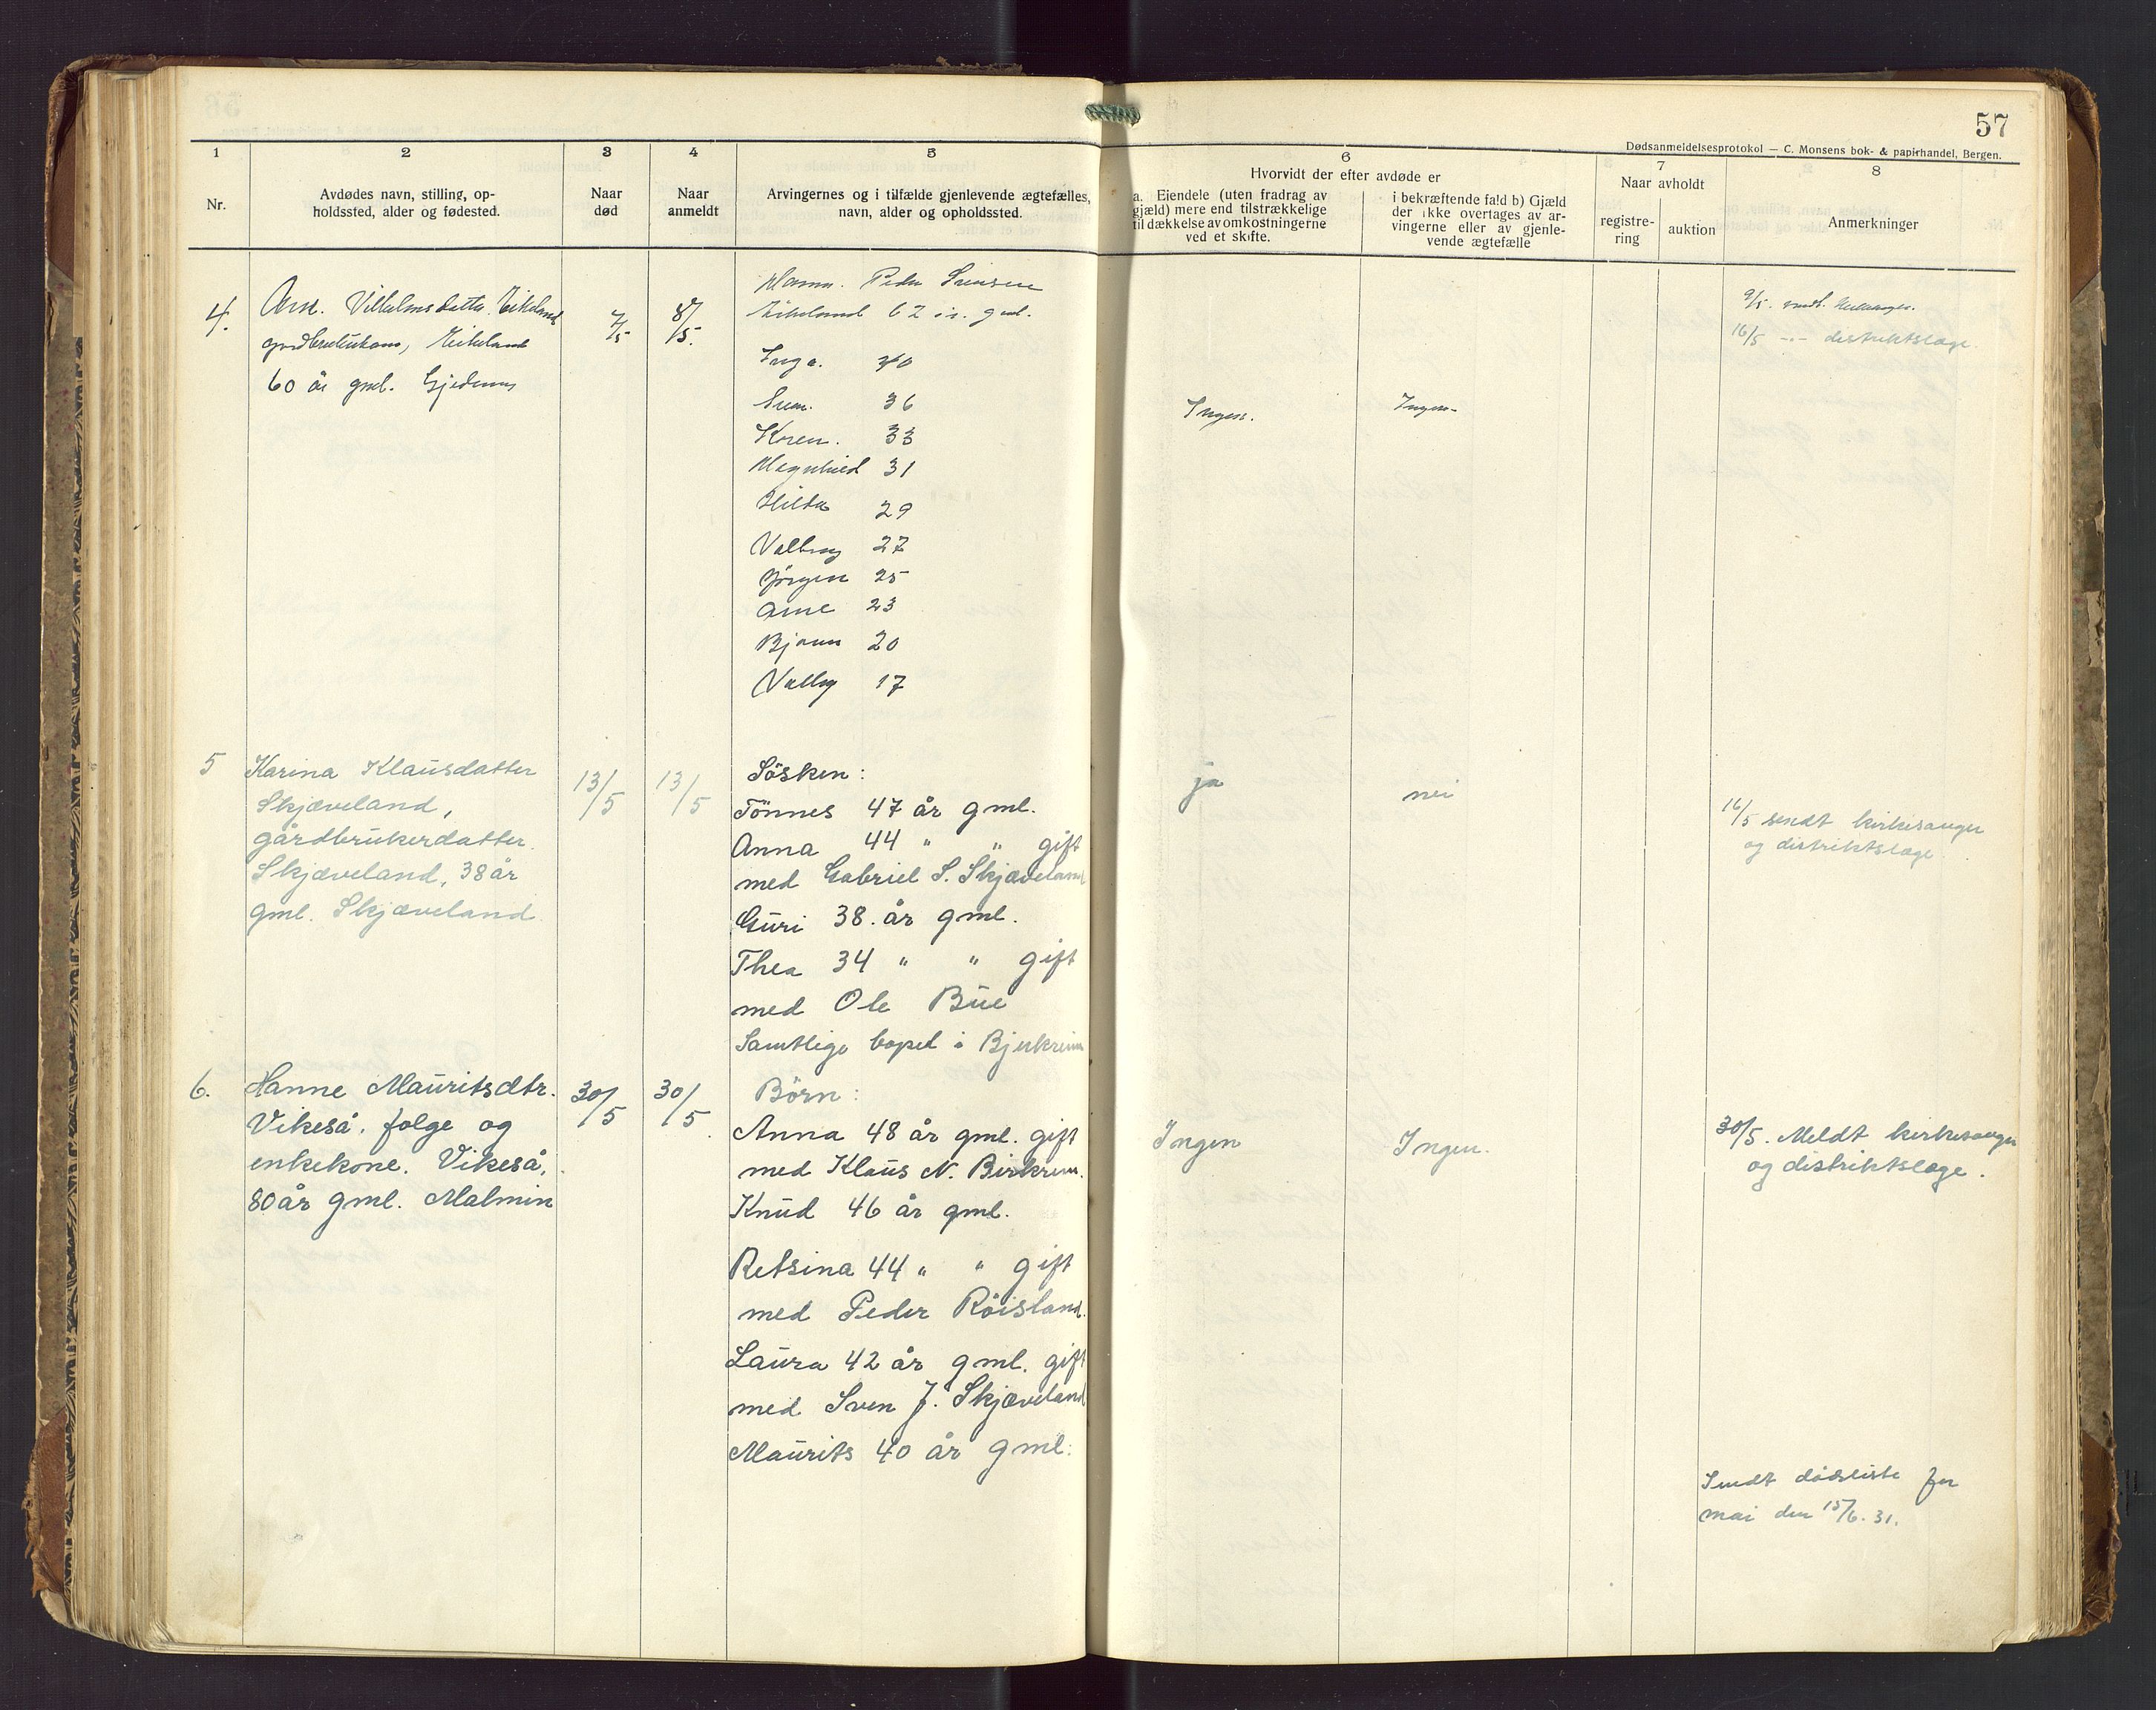 57
Dødsanmeldelsesprotokol — C. Monsens bok- & papirhandel, Bergen.
1 2 3 4 5 6 7 8
Nr.
Avdødes navn, stilling, op-
holdssted, alder og fødested.
Naar
død
Naar
anmeldt
Arvingernes og i tilfælde gjenlevende ægtefælles,
navn, alder og opholdssted.
Hvorvidt der efter avdøde er
a. Eiendele (uten fradrag av
gjæld) mere end tilstrækkelige
til dækkelse av omkostningerne
ved et skifte.
i bekræftende fald b) Gjæld
der ikke overtages av ar-
vingerne eller av gjenle-
vende ægtefælle
Naar avholdt
registre-
ring
auktion
Anmerkninger
4.
Vilhelmsdatter Eikeland
Eikeland
60 år gml.
7/5
8/5.
Mann. Peder
Eikeland 62 år. gml.
Inga. 40
Sven. 36
Karen. 33
Magnhild 31
Hilda 29
Valborg 27
Jörgen 25
Arne 23
Bjarne 20
17
Ingen.
Ingen.
9/5. sendt.
16/5 -"- distriktslæge.
5
Karina Klausdatter
Skjæveland,
gårdbrukerdatter.
Skjæveland, 38 år
gml. Skjæveland.
13/5
13/5
Sösken:
Tönnes 47 år gml.
Anna 44 " " gift
med Gabriel S. Skjæveland
Guri 38. år gml.
Thea 34 " " gift
med Ole Bue
Samtlige bopel i Bjerkreim
ja
nei
16/5 sendt kirkesanger
og distriktslæge.
6.
Hanne Mauritsdtr.
Vikeså. folge og
enkekone. Vikeså.
80 år gml. Malmin
30/5
30/5
Börn:
Anna 48 år gml. gift
med Klaus N. Birkrem.
Knud 46 år gml.
Retsina 44 " " gift
med Peder Röisland.
Laura 42 år gml. gift
med Sven J. Skjæveland
Maurits 40 år gml.
Ingen
Ingen.
30/5. Meldt kirkesanger
og distriktslæge.
Sendt dödsliste for
mai den 15/6. 31.